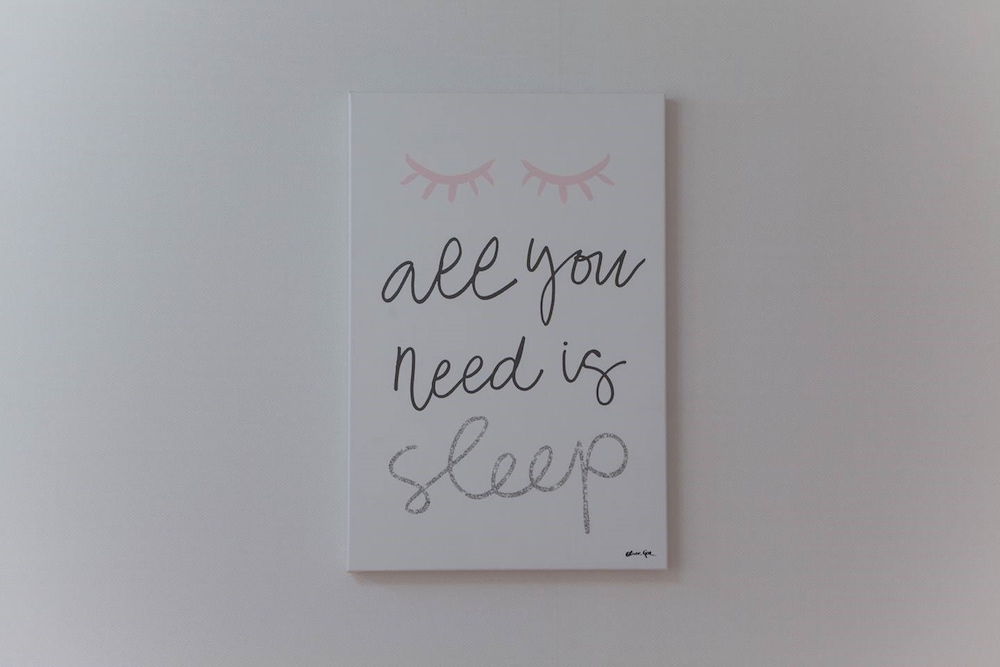 all you
need is
sleep